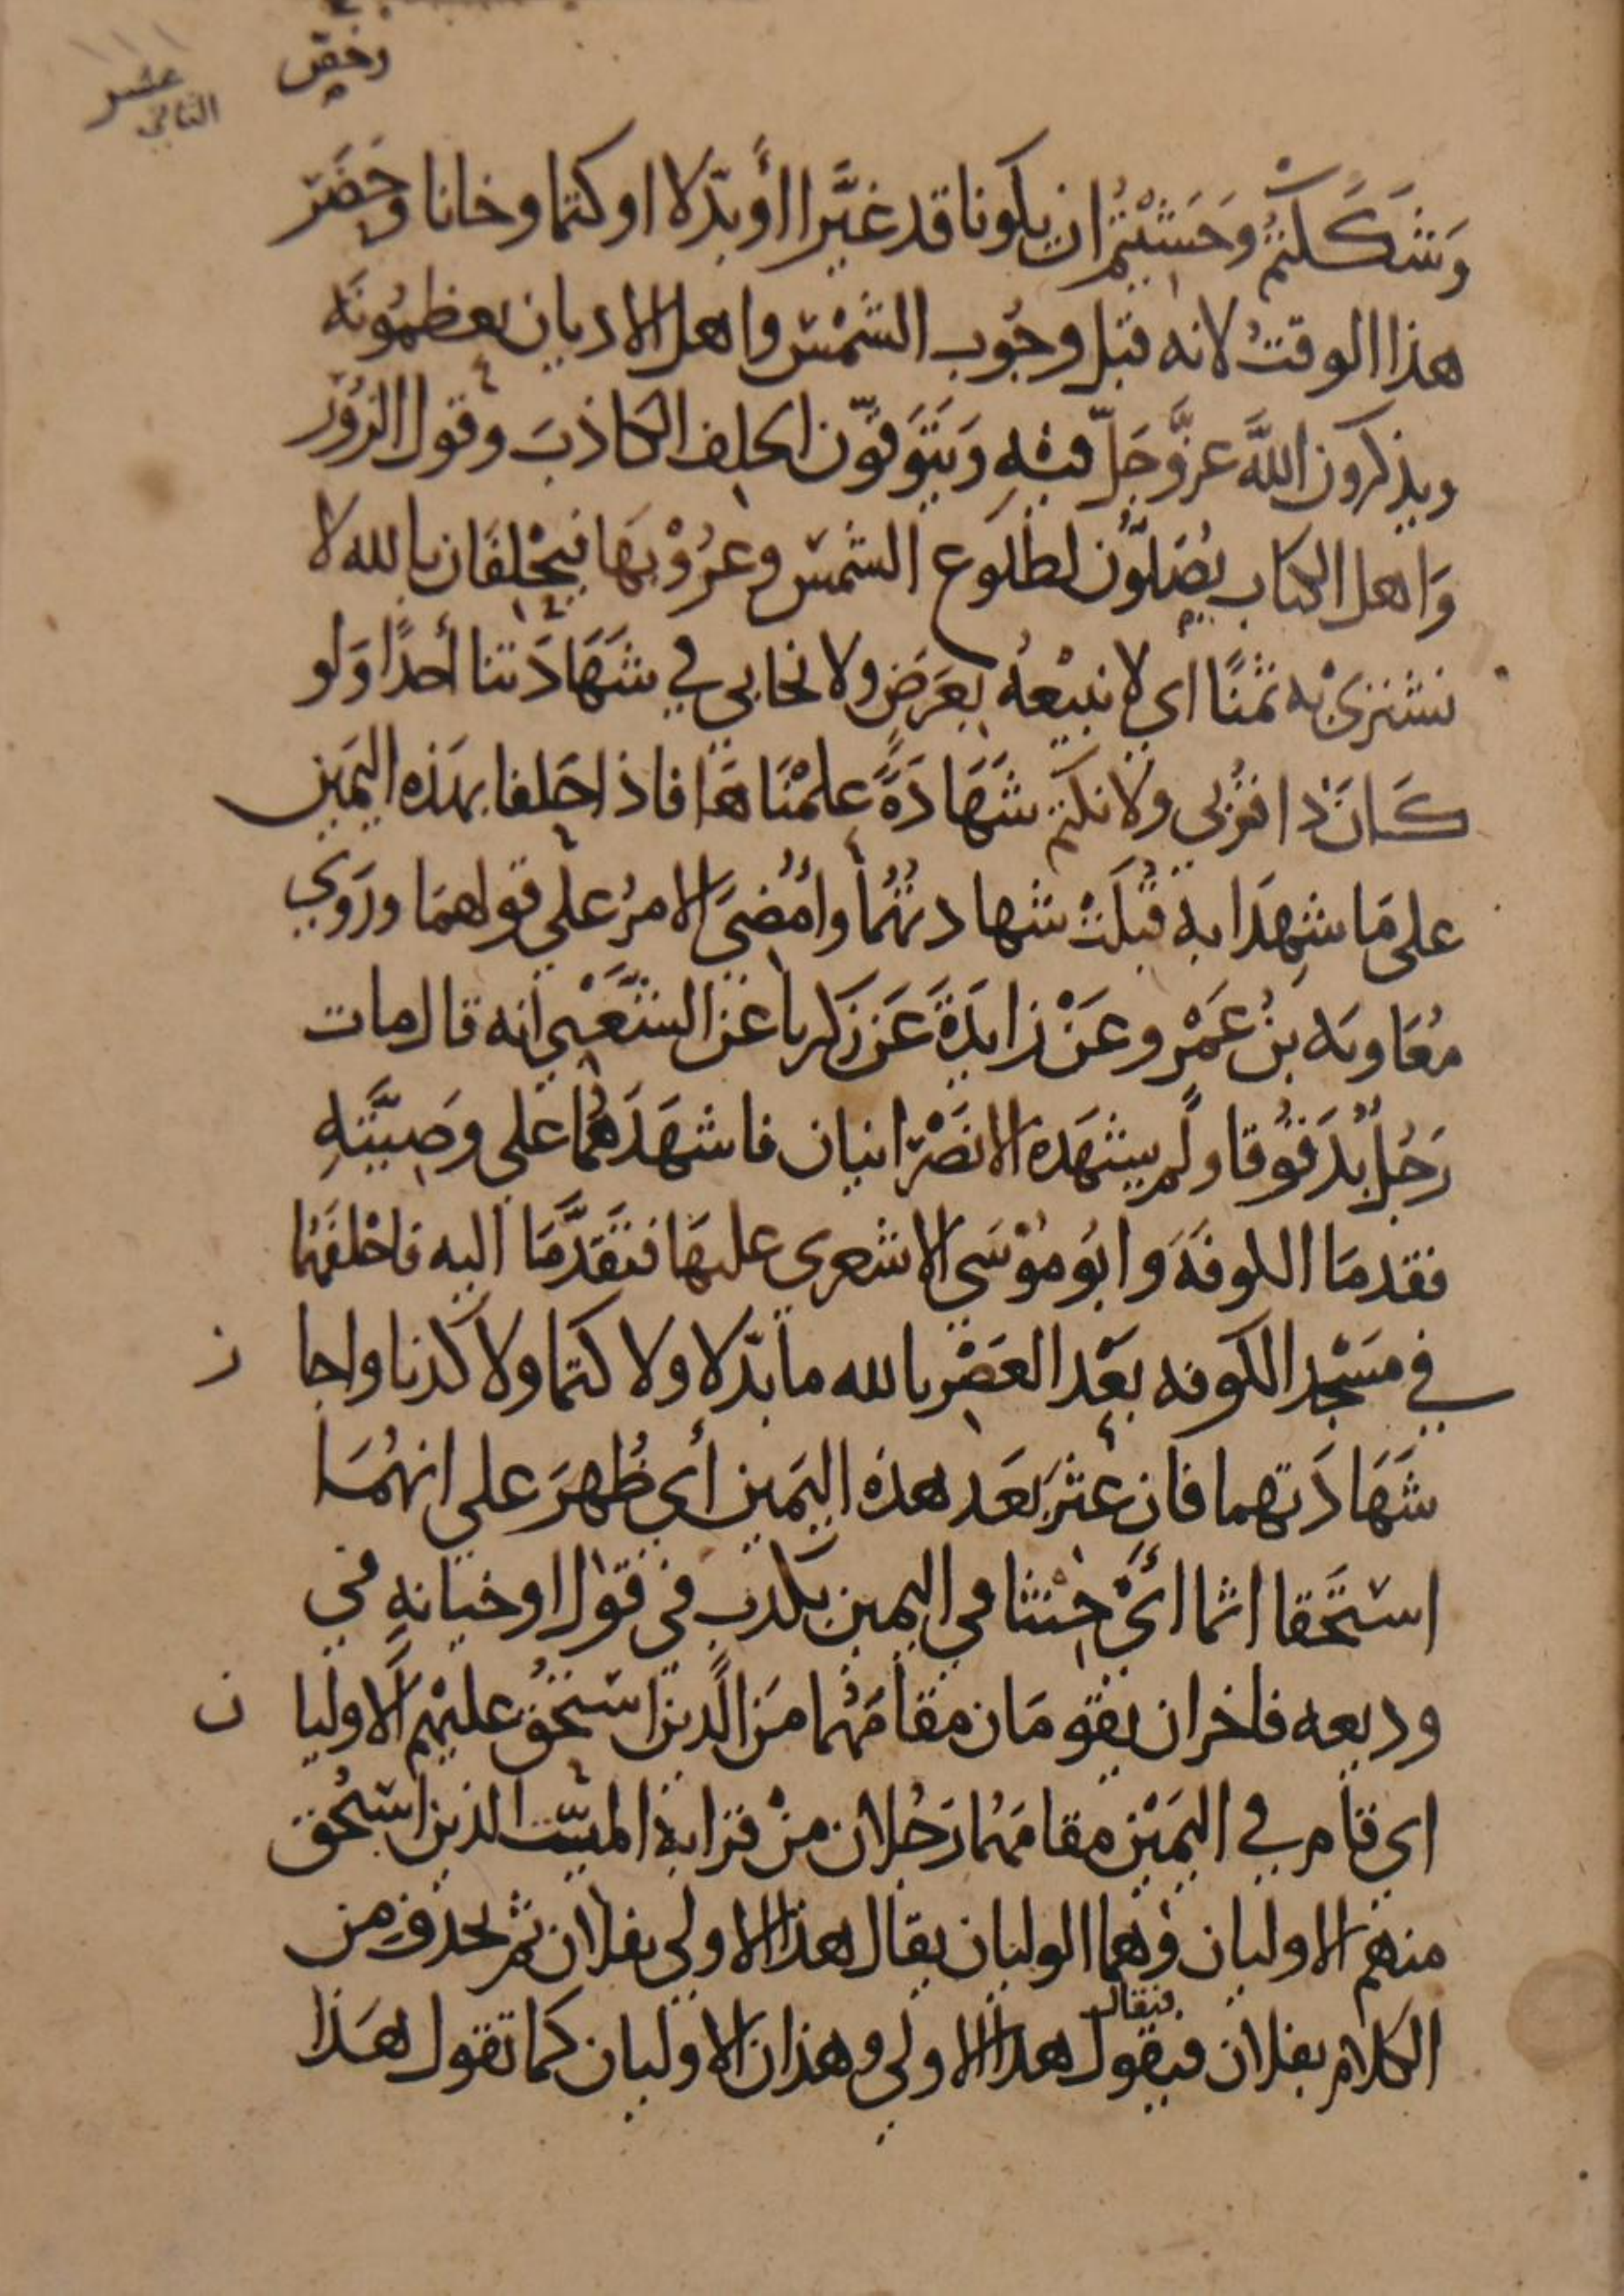 وقف
عشر
الثاني
وَشَكَكتُمْ وَخَشِيْتُم ان يكونا قد غيَّرا أو بدّلا او كتما وخانا وخَصّ
هذا الوقتُ لانه قبل وجُوب الشمْس واهل الاديان يعظمُونَه
ويذكرون اللَّه عزَّ وَجَلّ فيْهِ وَيَتَوَقَّوْن الحلف الكاذبَ وقول الزُوْر
وَاهل الكتاب يُصَلُّوْن لطُلوع الشمس وغرُوْبهَا فيَحْلفَان بالله لا
نشتري به ثمنًا اي لا نبيْعهُ بعَرَضٍ ولا نحابي في شَهَادَتنا أحدًا وَلو
كَانَ ذا قرْبى ولا نكتم شَهَادَةً علمْنَاهَا فاذا حَلفا بهَذه اليَمَيْن
على مَا شهِدَا به قُبلَتْ شهادتُهُما وأُمْضيَ الامرُ على قولهمَا ورَوَى
مُعَاويَه بنُ عَمْرو عَنْ زايدَةَ عَن زكريا عَن الشَّعْبي انه قال مات
رَجُلٌ بدَقُوْقا ولم يشهَده الا نصْرانيان فاشهَدَهُما على وصيَّتهِ
فقدمَا الكوفَةَ وابُو مُوْسَي الاشعري عليهَا فتقَدَّمَا اليه فاحْلفَهُمَا
في مَسْجد الكوفه بَعْد العَصْر بالله ما بدّلا ولا كتما ولا كذبا واجا ز
شَهَادَتهما فان عثرَ بَعَد هذه اليَمين أي ظُهرَ على انهُمَا
استَحَقا اثما ائَ حنثا في اليمين بكذب في قول او خيانهٍ في
وديعه فاخران يقومَان مقامَهُما مَن الَّذين استحقُ عليْهم الاوليا ن
اي قام في اليَمَيْن مقامَهُما رَجُلان منْ قرابة الميّت الذين استُحق
منهم الاوليان وهما الوليان يقال هذا الاولى بفلان ثم يحذف من
الكلام بفلان فيقول هذا الاولى وهذان الاوليان كما تقول هَذا
فيقال